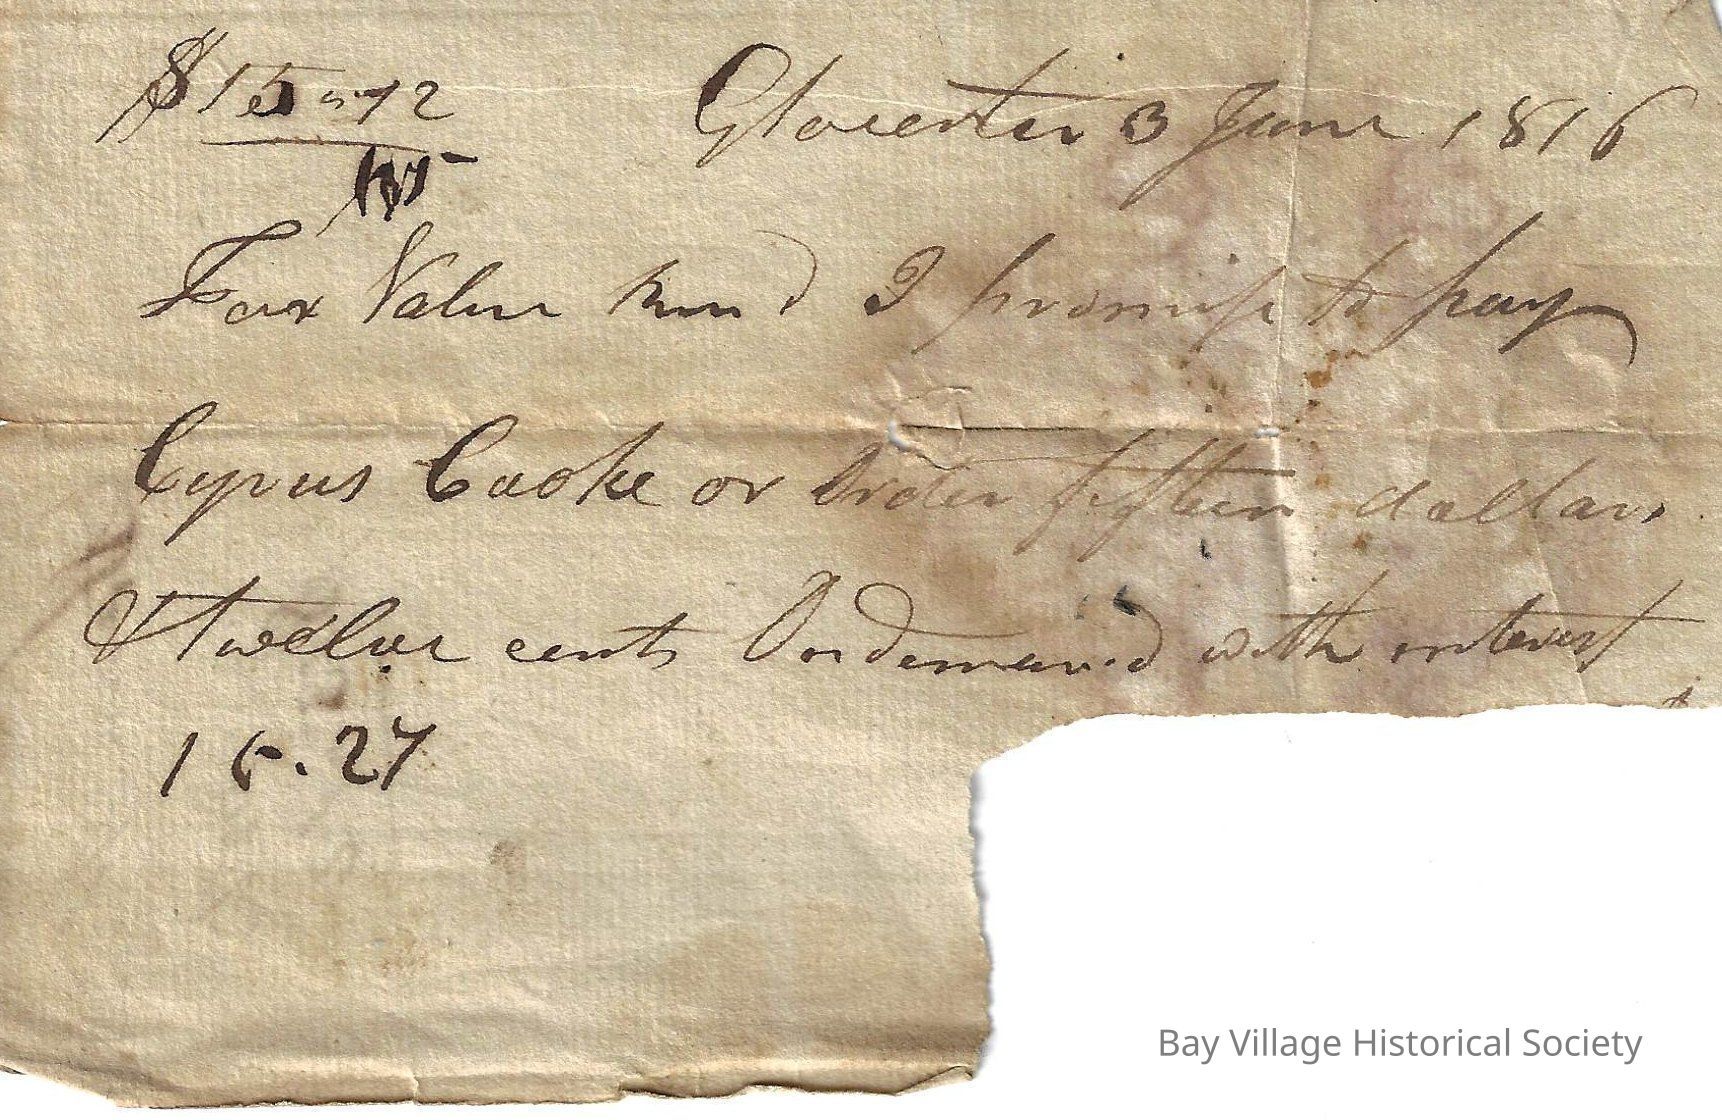 $15-12 Glocester 3 June 1816
15
For Value Recd I promise to pay
Cyrus Cooke or Order fifteen dollars
& twelve cents On demand with interest
15.27
Bay Village Historical Society